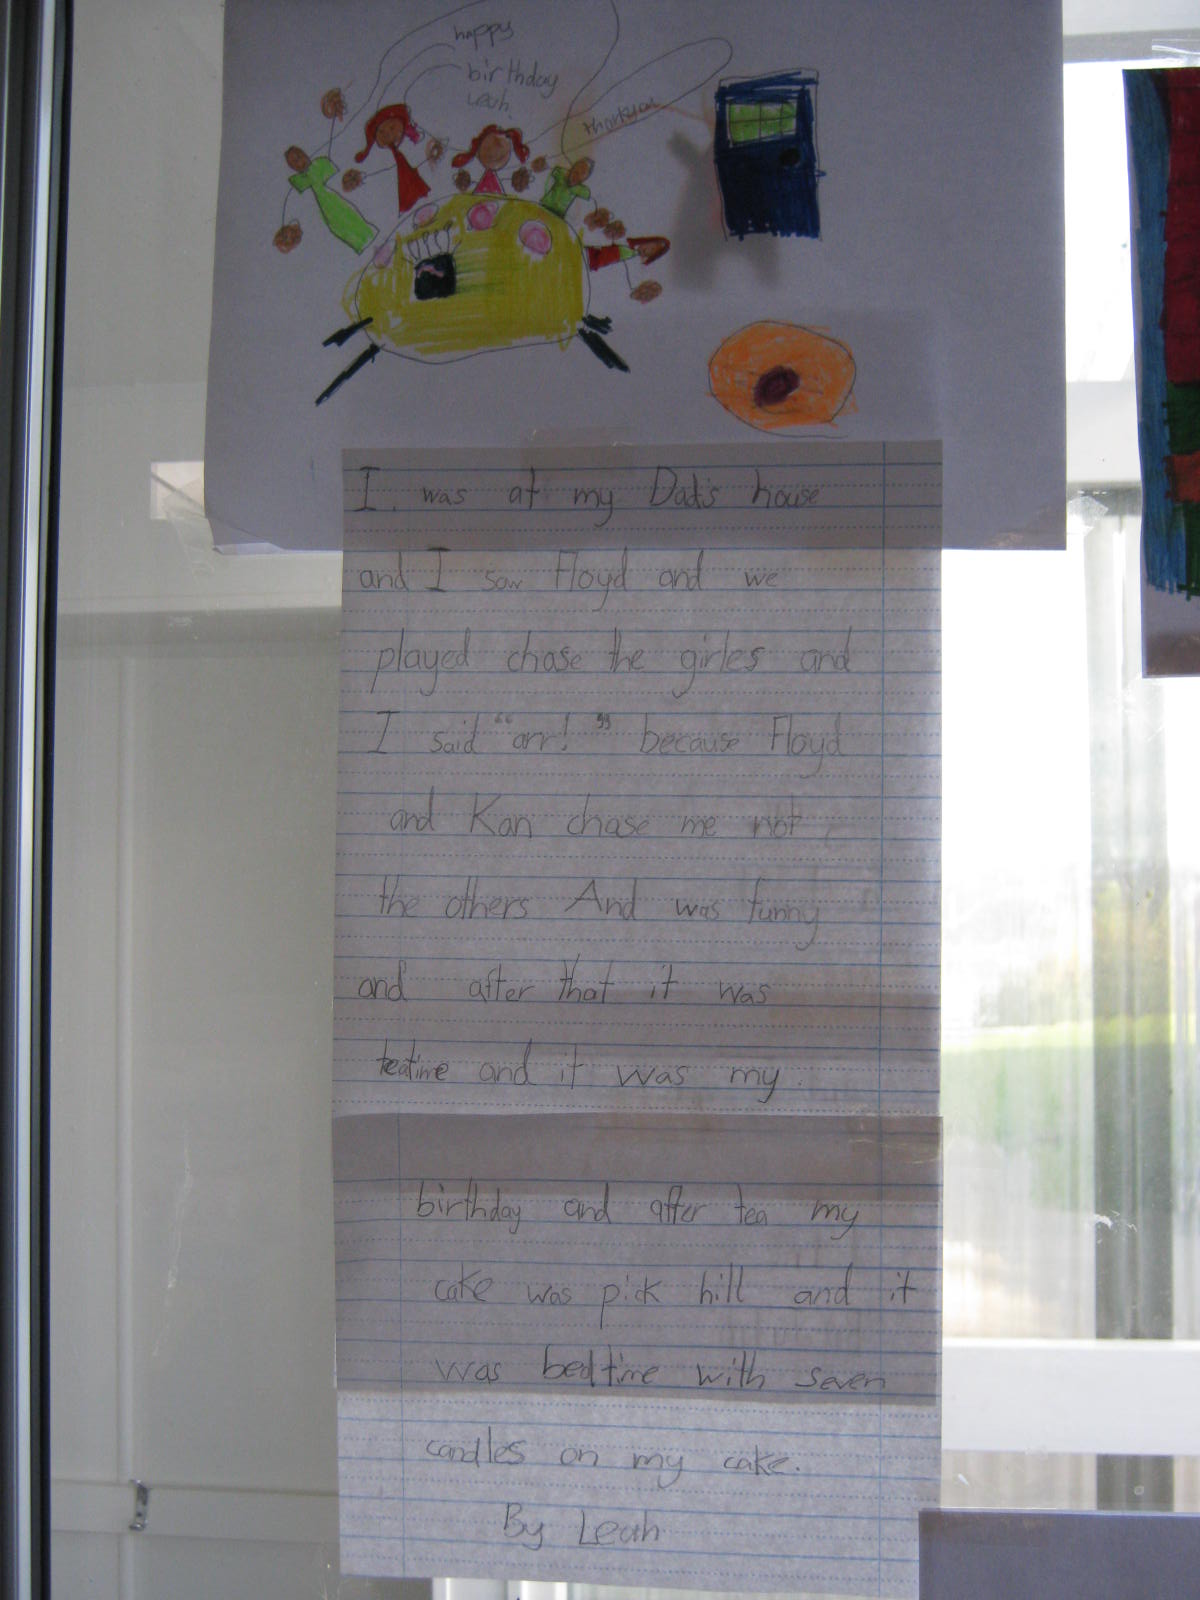 happy
birthday
Leah.
thankyou
I. was at my Dad's house
and I saw Floyd and we
played chase the girles and
I said "arr!" because Floyd
and Kan chase me not
the others And was funny
and after that it was
teatime and it was my.
birthday and after tea my
cake was pick hill and it
was bedtime with seven
candles on my cake.
By Leah